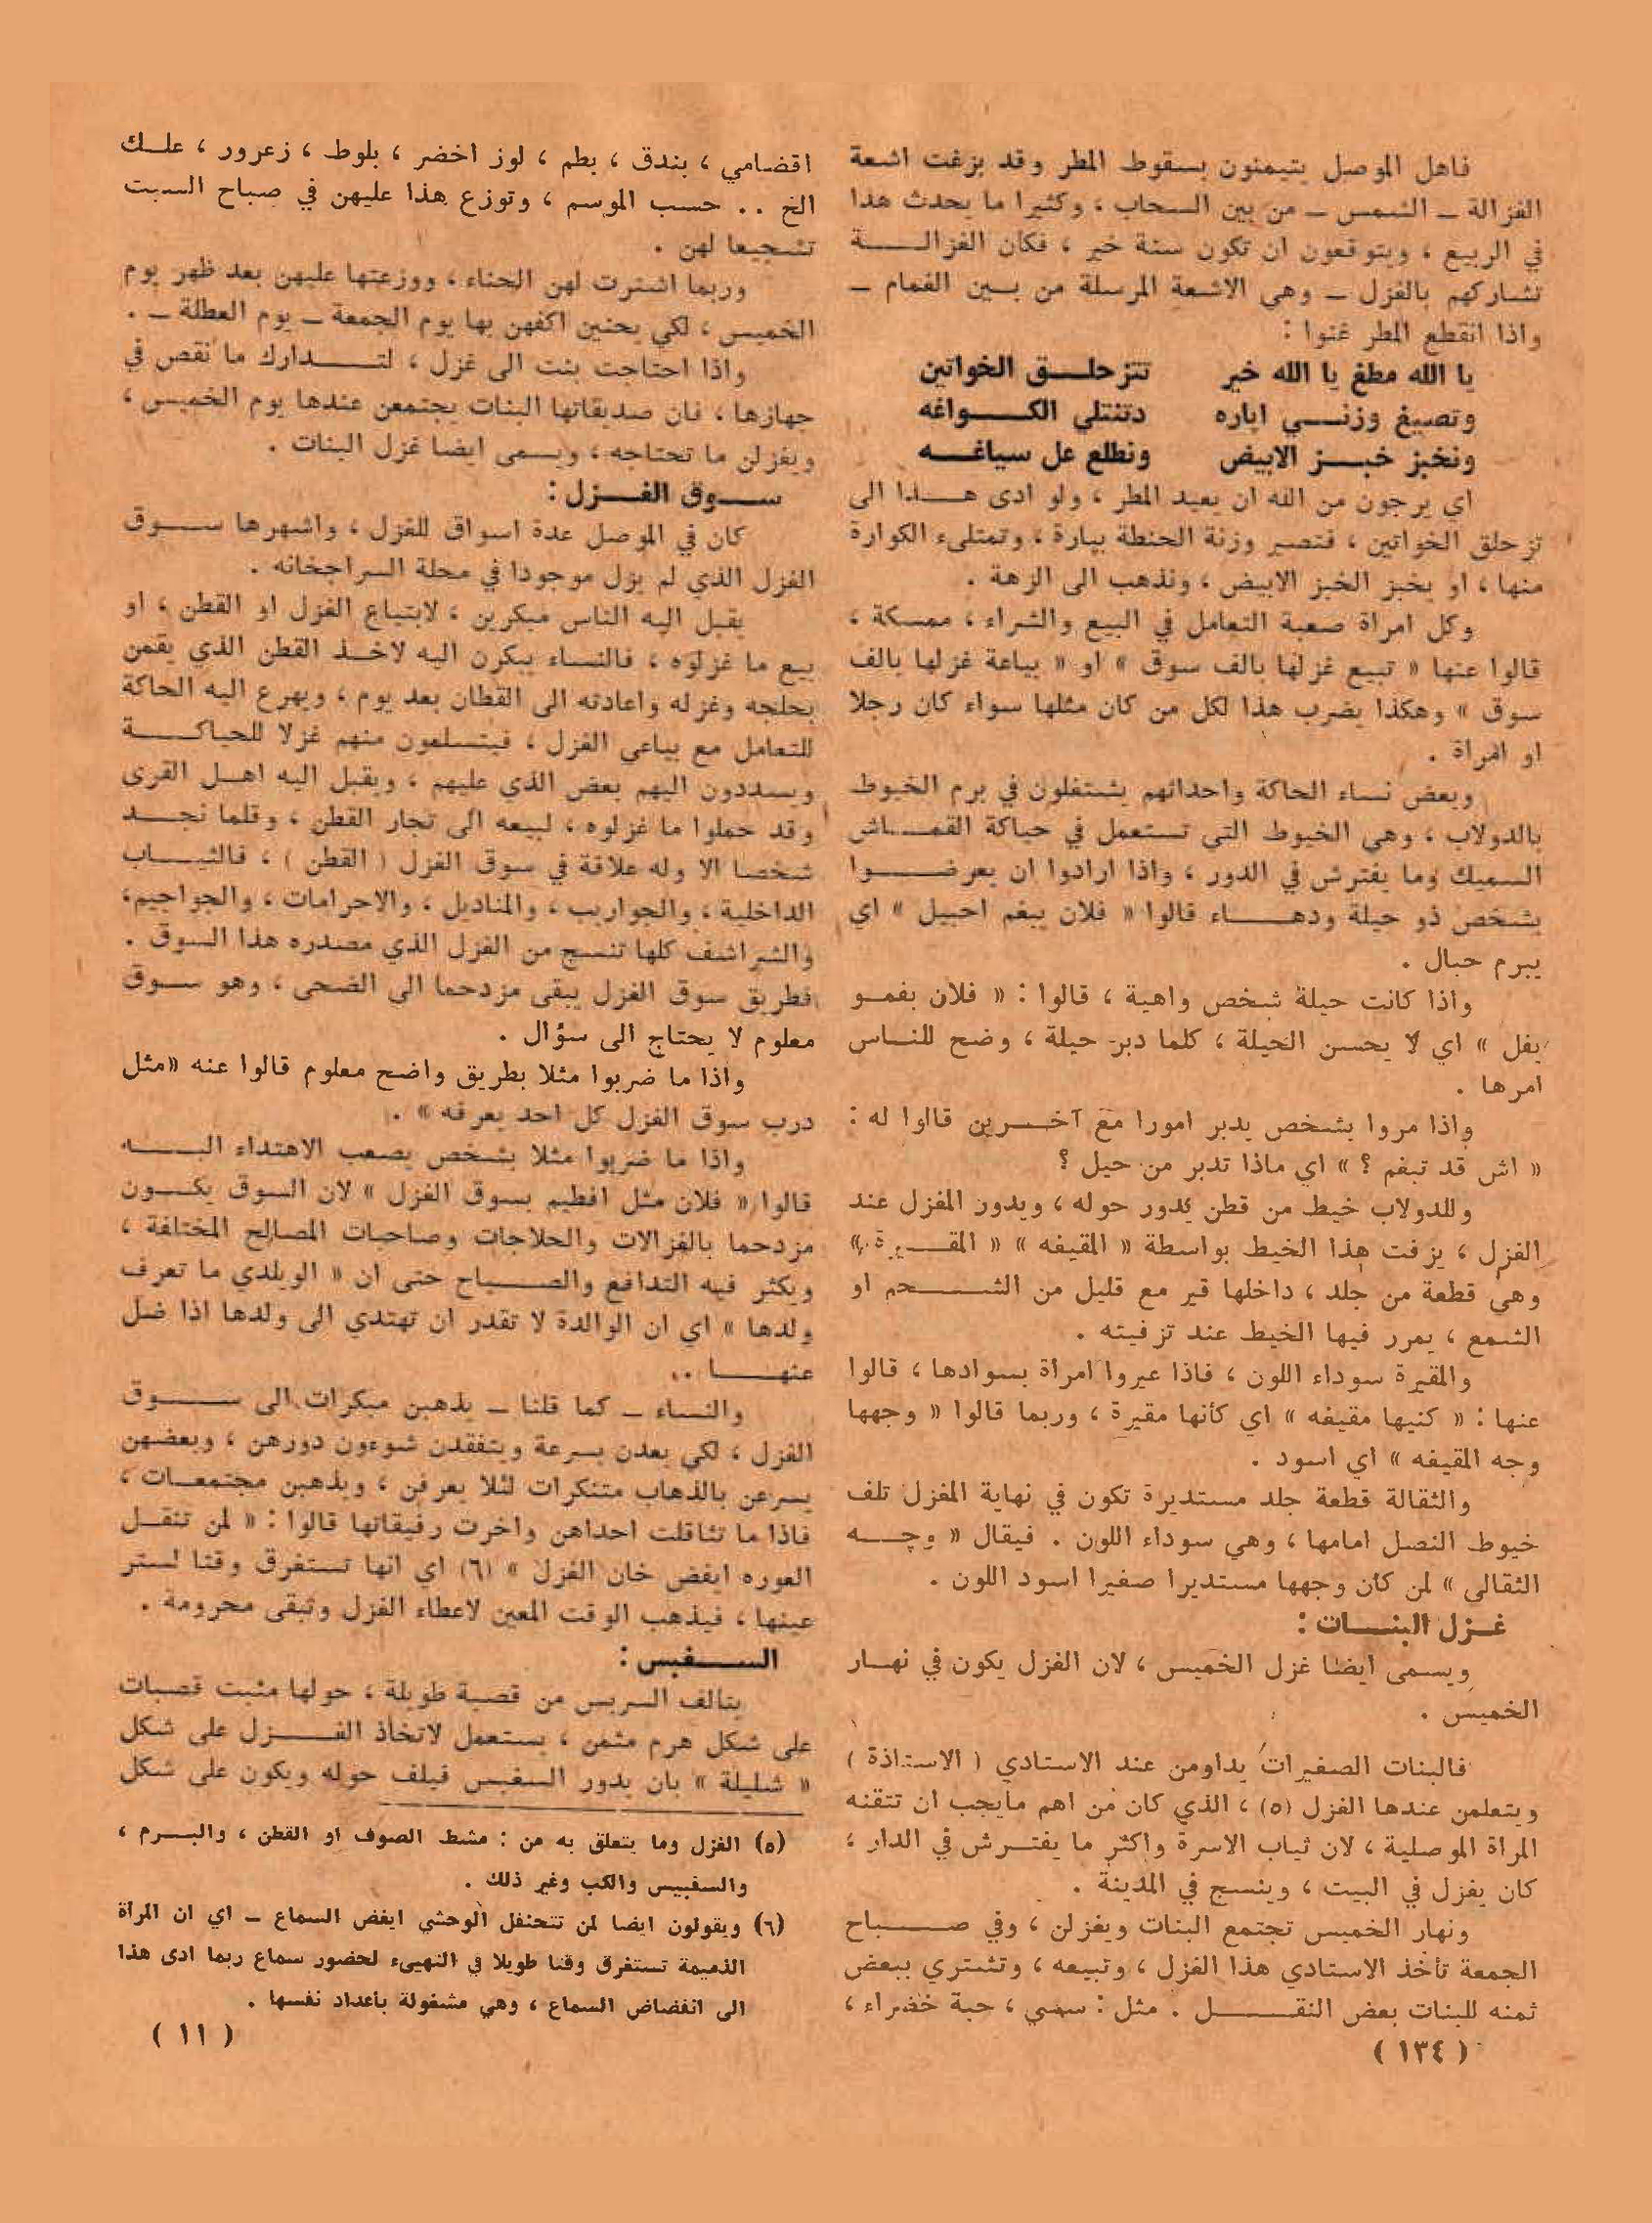 فاهل الموصل يتيمنون بسقوط المطر وقد بزغت اشعة
الغزالة ـ الشمس ـ من بين السحاب ، وكثيرا ما يحدث هذا
في الربيع ، ويتوقعون ان تكون سنة خير ، فكان الغزالة
تشاركهم بالغزل ـ وهي الاشعة المرسلة من بين الغمام ـ
واذا انقطع المطر غنوا :
يا الله مطغ يا الله خير تتزحلق الخواتين
وتصيغ وزني اباره دتنتلي الكواغه
ونخبز خبز الابيض ونطلع عل سياغه
اي يرجون من الله ان يعيد المطر ، ولو ادى هذا الى
تزحلق الخواتين ، فتصير وزنة الحنطة ببارة ، وتمتلىء الكوارة
منها ، او يخبز الخبز الابيض ، ونذهب الى الزهة .
وكل امرأة صعبة التعامل في البيع والشراء ، ممسكة ،
قالوا عنها « تبيع غزلها بالف سوق » او « بياعة غزلها بالف
سوق » وهكذا يضرب هذا لكل من كان مثلها سواء كان رجلا
او امرأة .
وبعض نساء الحاكة واحداثهم يشتغلون في برم الخيوط
بالدولاب ، وهي الخيوط التي تستعمل في حياكة القماش
السميك وما يفترش في الدور ، واذا ارادوا ان يعرضوا
بشخص ذو حيلة ودهاء قالوا « فلان يبغم احبيل » اي
يبرم حبال .
واذا كانت حيلة شخص واهية ، قالوا : « فلان بغمو
يفل » اي لا يحسن الحيلة ، كلما دبر حيلة ، وضح للناس
امرها .
واذا مروا بشخص يدبر امورا مع آخرين قالوا له :
« اش قد تبغم ؟ » اي ماذا تدبر من حيل ؟
وللدولاب خيط من قطن يدور حوله ، ويدور المغزل عند
الغزل ، يزفت هذا الخيط بواسطة « المقيغه » « المقيرة »
وهي قطعة من جلد ، داخلها قير مع قليل من الشحم او
الشمع ، يمرر فيها الخيط عند تزفيته .
والمقيرة سوداء اللون ، فاذا عيروا امرأة بسوادها ، قالوا
عنها : « كنيها مقيغه » اي كأنها مقيرة ، وربما قالوا « وجهها
وجه المقيغه » اي اسود .
والثقالة قطعة جلد مستديرة تكون في نهاية المغزل تلف
خيوط النصل امامها ، وهي سوداء اللون . فيقال « وجه
الثقالي » لمن كان وجهها مستديرا صغيرا اسود اللون .
غزل البنات :
ويسمى ايضا غزل الخميس ، لان الغزل يكون في نهار
الخميس .
فالبنات الصغيرات يداومن عند الاستادي ( الاستاذة )
ويتعلمن عندها الغزل (٥) ، الذي كان من اهم مايجب ان تتقنه
المرأة الموصلية ، لان ثياب الاسرة واكثر ما يفترش في الدار ،
كان يغزل في البيت ، وينسج في المدينة .
ونهار الخميس تجتمع البنات ويغزلن ، وفي صباح
الجمعة تأخذ الاستادي هذا الغزل ، وتبيعه ، وتشتري ببعض
ثمنه للبنات بعض النقل . مثل : سمسي ، حبة خضراء ،
( ١٣٤ )
اقضامي ، بندق ، بطم ، لوز اخضر ، بلوط ، زعرور ، علك
الخ .. حسب الموسم ، وتوزع هذا عليهن في صباح السبت
تشجيعا لهن .
وربما اشترت لهن الحناء ، ووزعتها عليهن بعد ظهر يوم
الخميس ، لكي يحنين اكفهن بها يوم الجمعة ـ يوم العطلة ـ .
واذا احتاجت بنت الى غزل ، لتدارك ما نقص في
جهازها ، فان صديقاتها البنات يجتمعن عندها يوم الخميس ،
ويغزلن ما تحتاجه ، ويسمى ايضا غزل البنات .
سوق الغزل :
كان في الموصل عدة اسواق للغزل ، واشهرها سوق
الغزل الذي لم يزل موجودا في محلة السراجخانه .
يقبل اليه الناس مبكرين ، لابتياع الغزل او القطن ، او
بيع ما غزلوه ، فالنساء يبكرن اليه لاخذ القطن الذي يقمن
بحلجه وغزله واعادته الى القطان بعد يوم ، ويهرع اليه الحاكة
للتعامل مع بياعي الغزل ، فيتسلمون منهم غزلا للحياكة
ويسددون اليهم بعض الذي عليهم ، ويقبل اليه اهل القرى
وقد حملوا ما غزلوه ، لبيعه الى تجار القطن ، وقلما نجد
شخصا الا وله علاقة في سوق الغزل ( القطن ) ، فالثياب
الداخلية ، والجواريب ، والمناديل ، والاحرامات ، والجواجيم،
والشراشف كلها تنسج من الغزل الذي مصدره هذا السوق .
فطريق سوق الغزل يبقى مزدحما الى الضحى ، وهو سوق
معلوم لا يحتاج الى سؤال .
واذا ما ضربوا مثلا بطريق واضح معلوم قالوا عنه «مثل
درب سوق الغزل كل احد يعرفه » .
واذا ما ضربوا مثلا بشخص يصعب الاهتداء اليه
قالوا « فلان مثل افطيم بسوق الغزل » لان السوق يكون
مزدحما بالغزالات والحلاجات وصاحبات المصالح المختلفة ،
ويكثر فيه التدافع والصياح حتى ان « الويلدي ما تعرف
ولدها » اي ان الوالدة لا تقدر ان تهتدي الى ولدها اذا ضل
عنها ..
والنساء ـ كما قلنا ـ يذهبن مبكرات الى سوق
الغزل ، لكي يعدن بسرعة ويتفقدن شوءون دورهن ، وبعضهن
يسرعن بالذهاب متنكرات لئلا يعرفن ، ويذهبن مجتمعات ،
فاذا ما تثاقلت احداهن واخرت رفيقاتها قالوا : « لمن تنقل
العوره ايفض خان الغزل » (٦) اي انها تستغرق وقتا لستر
عينها ، فيذهب الوقت المعين لاعطاء الغزل وتبقى محرومة .
السغيس :
يتالف السريس من قصبة طويلة ، حولها مثبت قصبات
على شكل هرم مثمن ، يستعمل لاتخاذ الغزل على شكل
« شليلة » بان يدور السغيس فيلف حوله ويكون على شكل
(٥) الغزل وما يتعلق به من : مشط الصوف او القطن ، والبرم ،
والسغييس والكب وغير ذلك .
(٦) ويقولون ايضا لمن تتحنفل الوحشي ايفض السماع ـ اي ان المرأة
الذميمة تستغرق وقتا طويلا في التهيىء لحضور سماع ربما ادى هذا
الى انفضاض السماع ، وهي مشغولة بأعداد نفسها .
( ١١ )